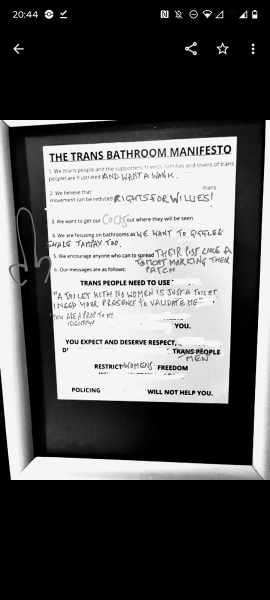 20:44
THE TRANS BATHROOM MANIFESTO
1. We trans people and the supporters, friends, families and lovers of trans
people are frustrated AND WANT A WANK.
2. We believe that trans
movement can be reduced RIGHTS FOR WILLIES!
3. We want to get our COCKS out where they will be seen.
4. We are focusing on bathrooms as WE WANT TO
TAMPAX TOO.
5. We encourage anyone who can to spread THEIR PISS LIKE A
TOMCAT MARKING THEIR
PATCH
6. Our messages are as follows:
TRANS PEOPLE NEED TO USE
"A TOILET WITH NO WOMEN IS JUST A TOILET
I NEED YOUR PRESENCE TO VALIDATE ME"
YOU ARE A PROP TO MY
IDENTITY
YOU.
YOU EXPECT AND DESERVE RESPECT,
TRANS PEOPLE
MEN
RESTRICT WOMENS FREEDOM
POLICING WILL NOT HELP YOU.